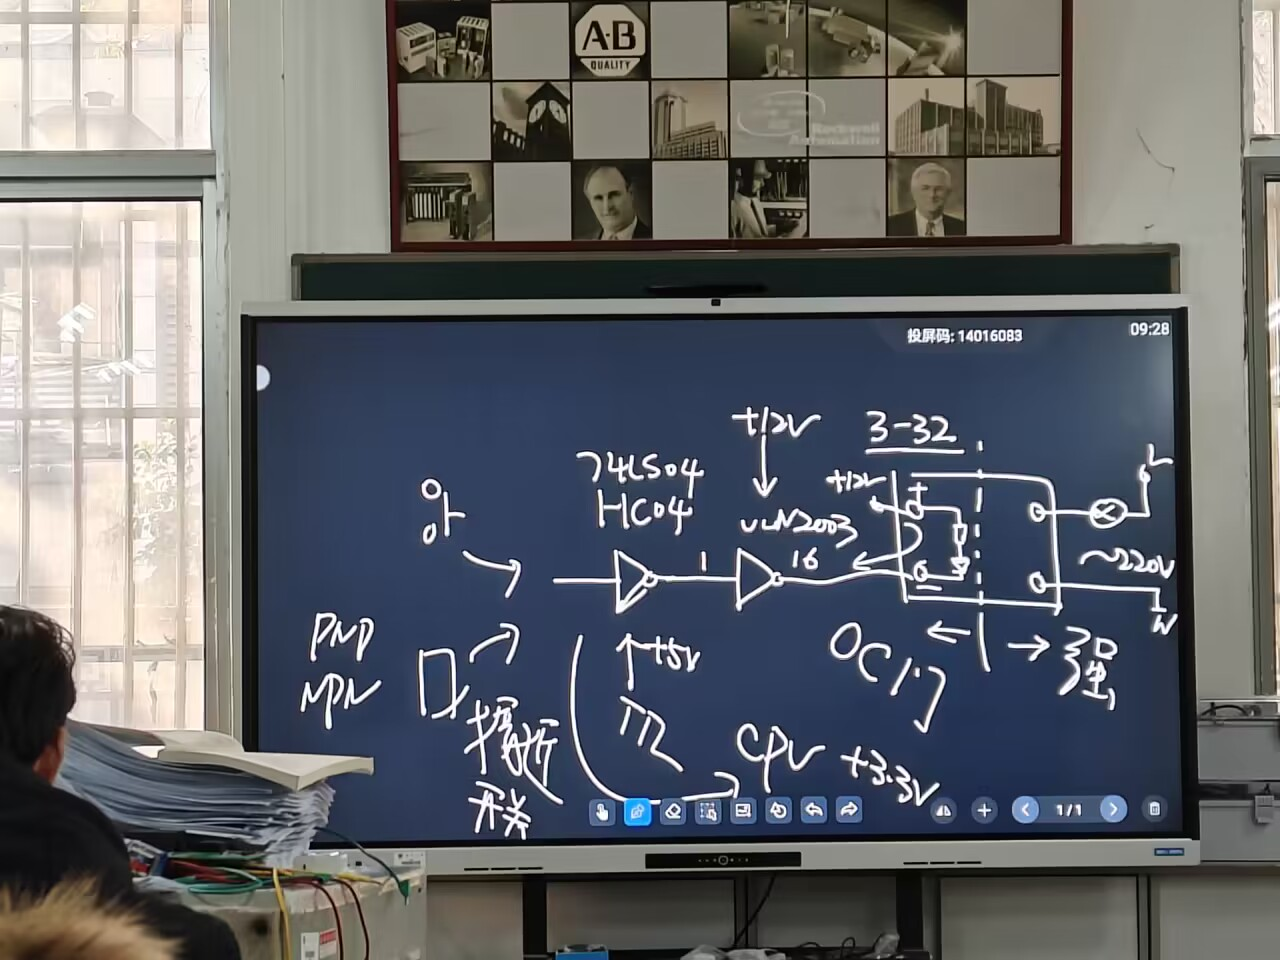 A·B
QUALITY
Rockwell
Automation
投屏码: 14016083
09:28
+12V
3-32
74LS04
HC04
+12V
ULN2003
L
1
16
~220V
N
PNP
NPN
+5V
OC门
强
接近
开关
CPU +3.3V
1/1